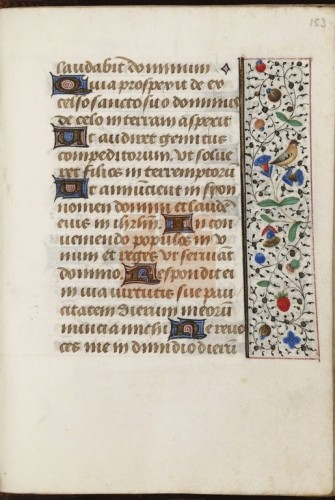 153
laudabit dominum
Quia prosperit de ex
celso sancto suo dominus
de celo in terram aspexit
Ut audiret gemitus
compeditorum ut solue
ret filios interremptorū
Ut annūcient in syon
nomen domini et laudē
eius in ihrlm̄ In con
ueniendo populos in v
num et reges ut seruiāt
domino Respondit ei
in uia uirtutis sue pau
citatem dierum meorū
nuncia michi Ne reuo
ces me in dimidio dierū